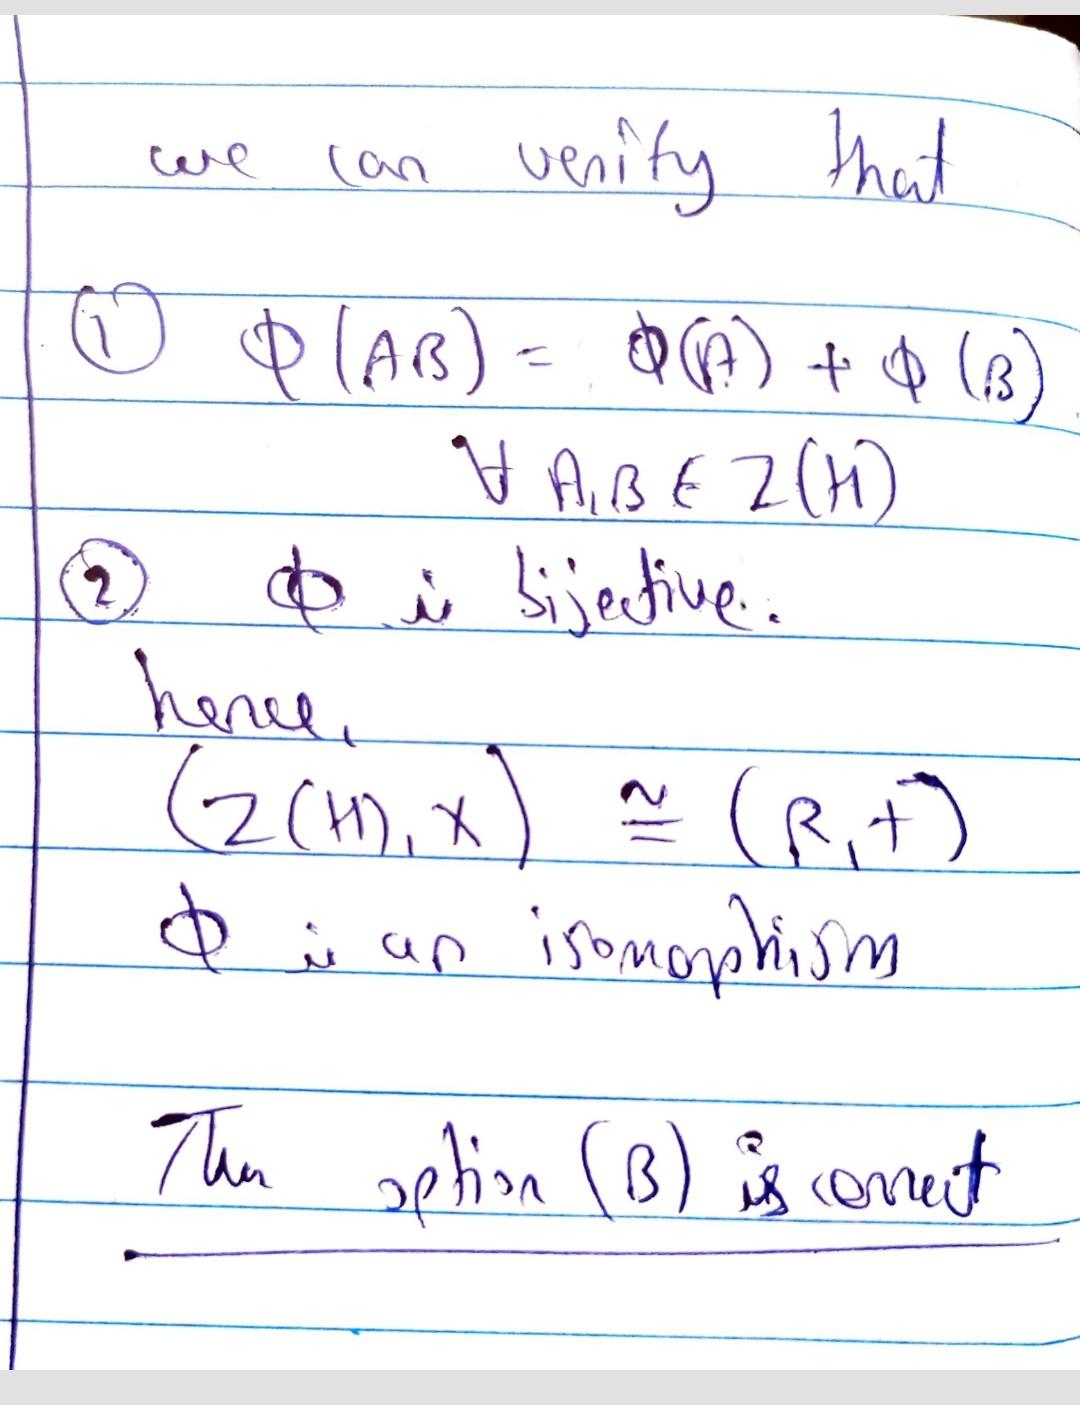 we can verify that
① Φ(AB) = Φ(A) + Φ(B)
∀ A,B ∈ Z(H)
② Φ is bijective.
hence,
(Z(H), X) ≅ (R,+)
Φ is an isomorphism
Thus option (B) is correct